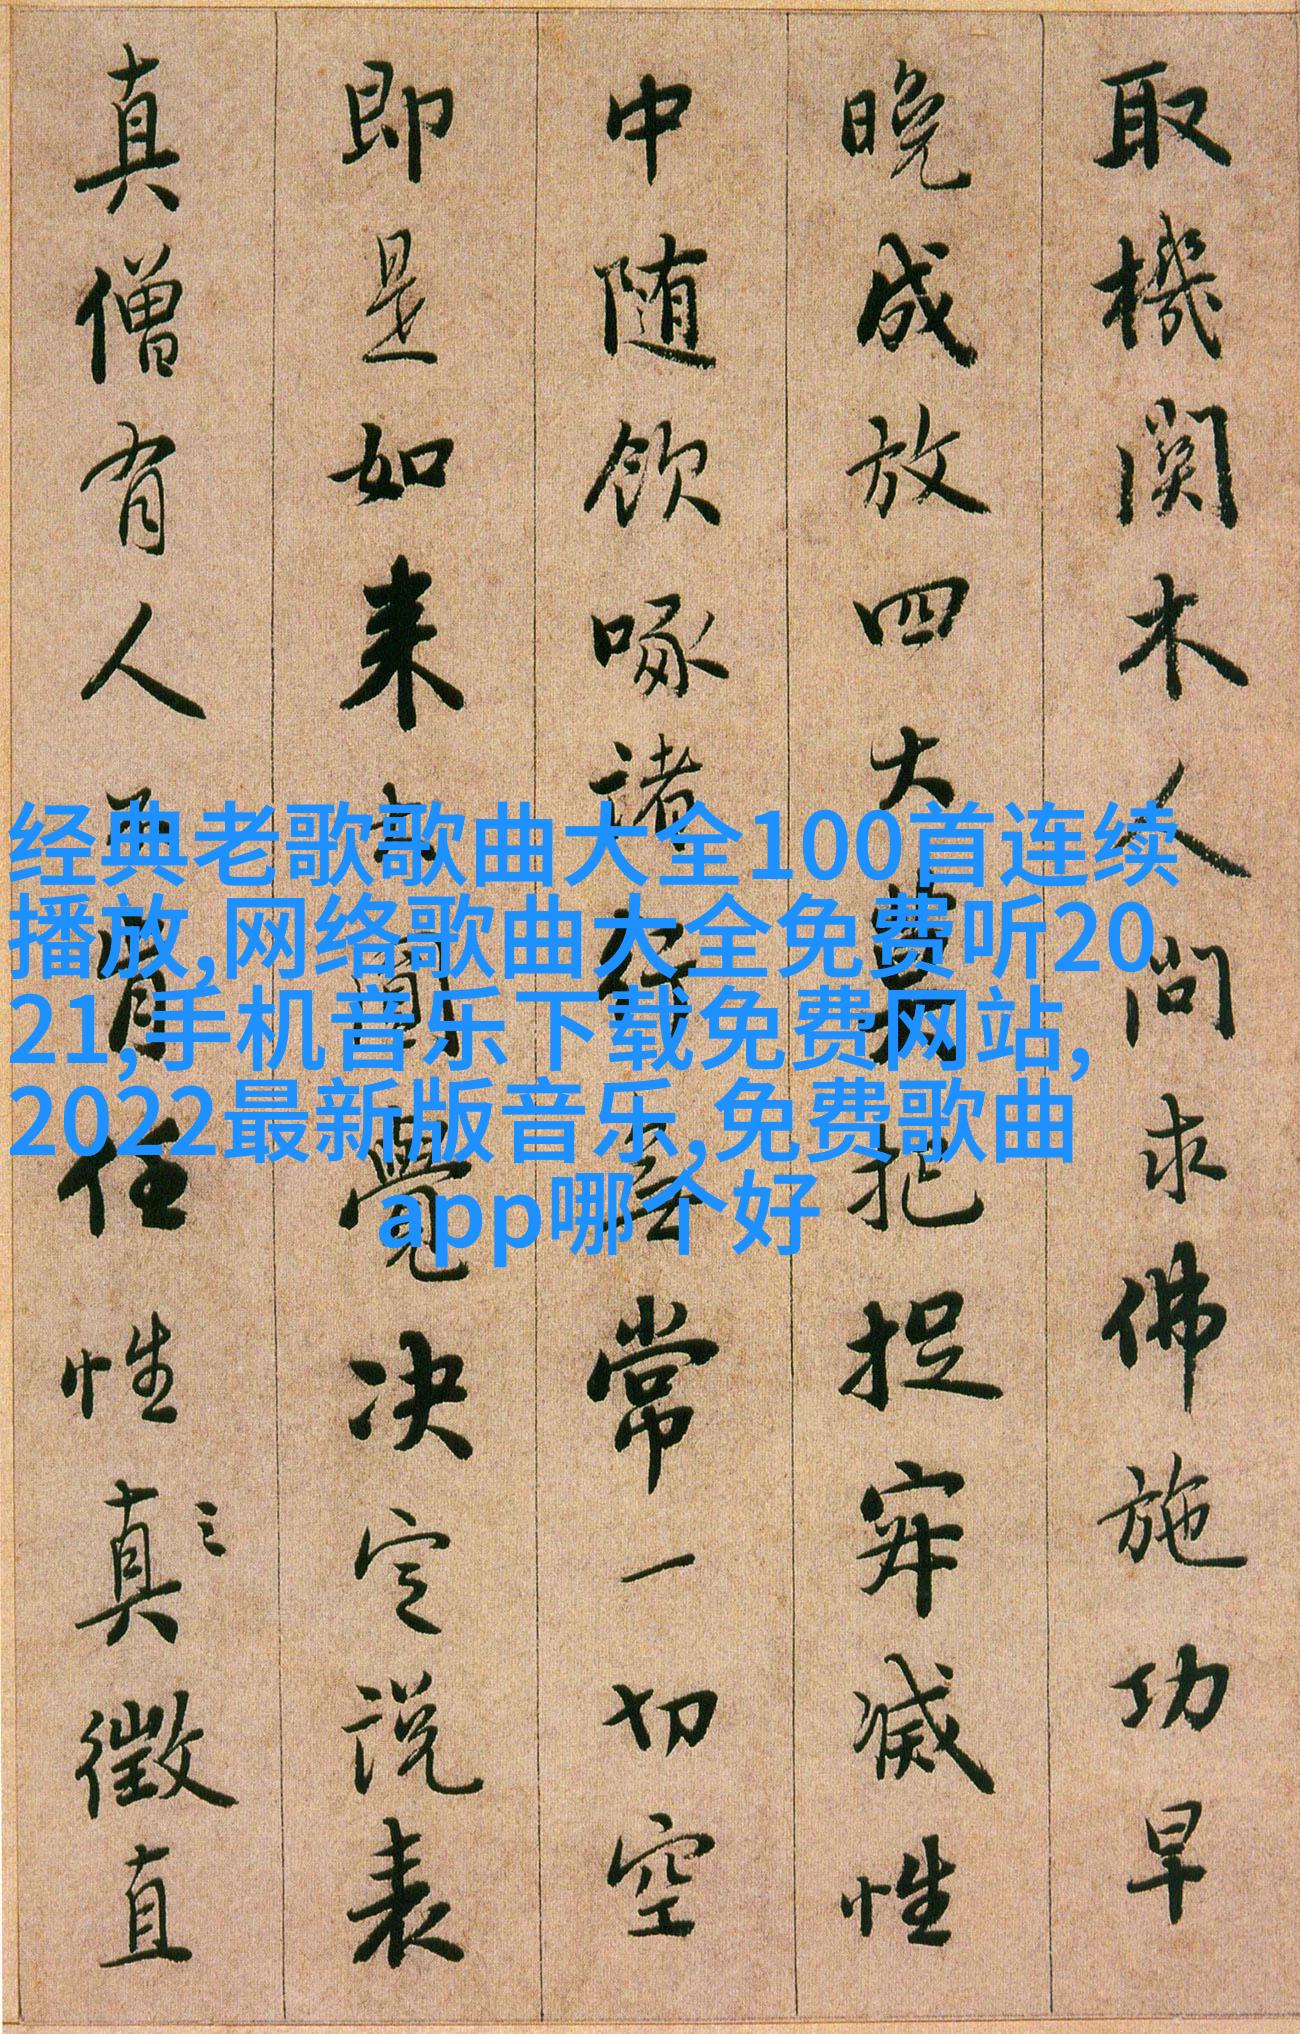 取機関木人問求佛施功早
晚成放四大莫把捉寂滅性
中随飲啄諸行無常一切空
即是如来大圓覺决定說表
真僧有人不肯任性真徵直
经典老歌歌曲大全100首连续
播放,网络歌曲大全免费听20
21,手机音乐下载免费网站,
2022最新版音乐,免费歌曲
app哪个好